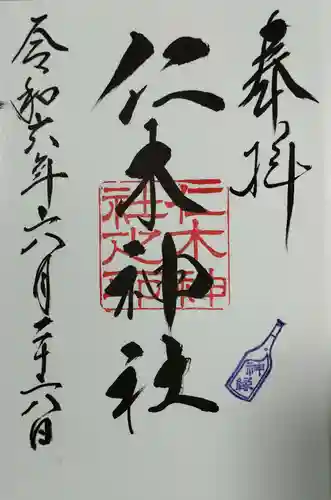 奉拝
仁木神社
仁木神
社之印
令和六年六月二十六日